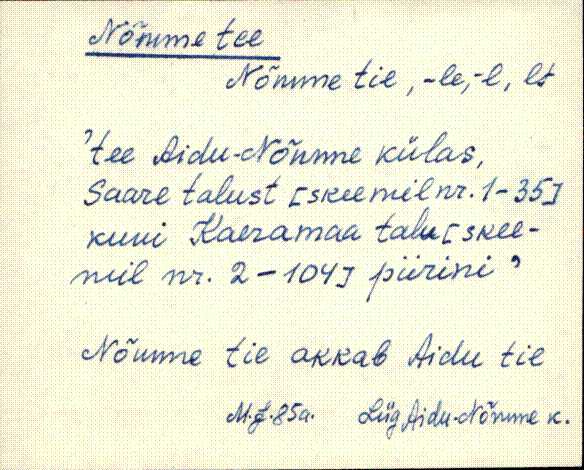 Nõmme tee
Nõmme tie, -le, -l, lt
'tee Aidu-Nõmme külas,
Saare talust [skeemil nr. 1-35]
kuni Kaeramaa talu [skee-
mil nr. 2-104] piirini'
Nõmme tie akkab Aidu tie
M.J.85a. Lüg Aidu-Nõmme k.